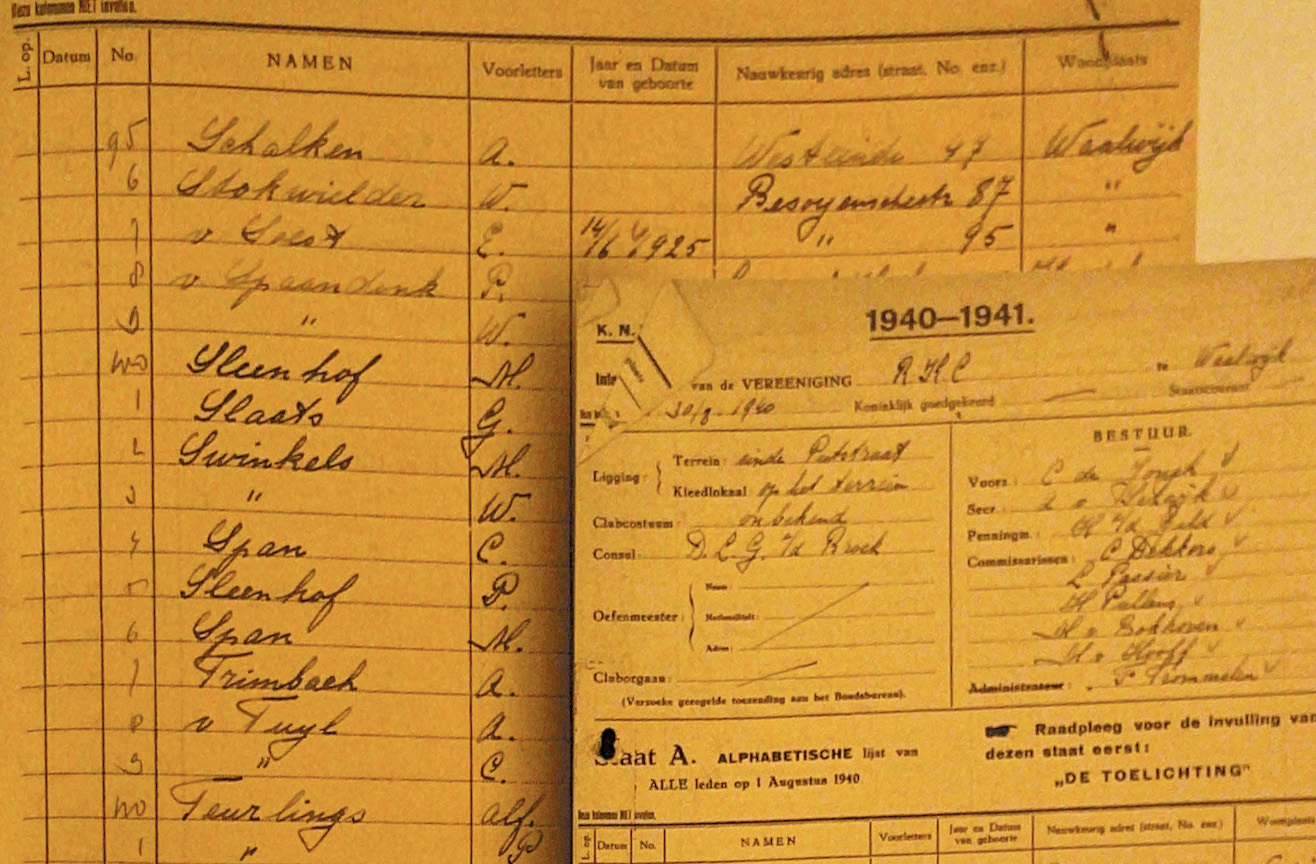 Deze kolommen NIET invullen.
L. op. Datum No. NAMEN Voorletters Jaar en Datum van geboorte Nauwkeurig adres (straat, No. enz.) Woonplaats
95 Schalken A. Westeinde 47 Waalwijk
6 Stokwielder W. Besoyenschestr 87 "
7 v Soest E. 14/6 1925 " 95 "
8 v Spaandonk P.
9 " W.
100 Sleenhof M.
1 Slaats G.
2 Swinkels M.
3 " W.
4 Span C.
5 Sleenhof P.
6 Span M.
7 Trimbach A.
8 v Tuyl A.
9 " C.
110 Teurlings Alf.
1 " P
K. N.
1940–1941.
van de VEREENIGING R K C te Waalwijk
30/8 1940 Koninklijk goedgekeurd — Staatscourant
Ligging: Terrein: einde Putstraat
Kleedlokaal: op het terrein
Clubcostuum: onbekend
Consul: D. L. G. v/d Broek
Oefenmeester: Naam:
Nationaliteit:
Adres:
Cluborgaan:
(Verzoeke geregelde toezending aan het Bondsbureau).
BESTUUR
Voorz: C de Jongh
Secr:
Penningm: H v/d
Commissarissen: C Dekkers
L Passier
H Pullens
H v Bokhoven
H v Hooff
Administrateur: F Trommelen
Staat A. ALPHABETISCHE lijst van
ALLE leden op 1 Augustus 1940
Raadpleeg voor de invulling van
dezen staat eerst:
„DE TOELICHTING"
Deze kolommen NIET invullen.
L. op. Datum No. NAMEN Voorletters Jaar en Datum van geboorte Nauwkeurig adres (straat, No. enz.) Woonplaats